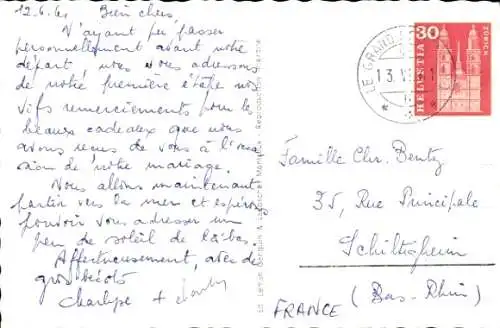 12.6.61 Bien chers,
N'ayant pu passer
personnellement avant notre
départ, nous vous adressons
de notre première étape nos
vifs remerciements pour les
beaux cadeaux que nous
avons reçus de vous à l'occa
sion de notre mariage.
Nous allons maintenant
partir vers la mer et espérons
pouvoir vous adresser un
peu de soleil de là-bas.
Affectueusement, avec des
gros bécots
+ Charly
LE GRAND
13.V
HELVETIA 30
ZÜRICH
Famille Chr. Bentz
35, Rue Principale
Schiltigheim
FRANCE (Bas-Rhin)